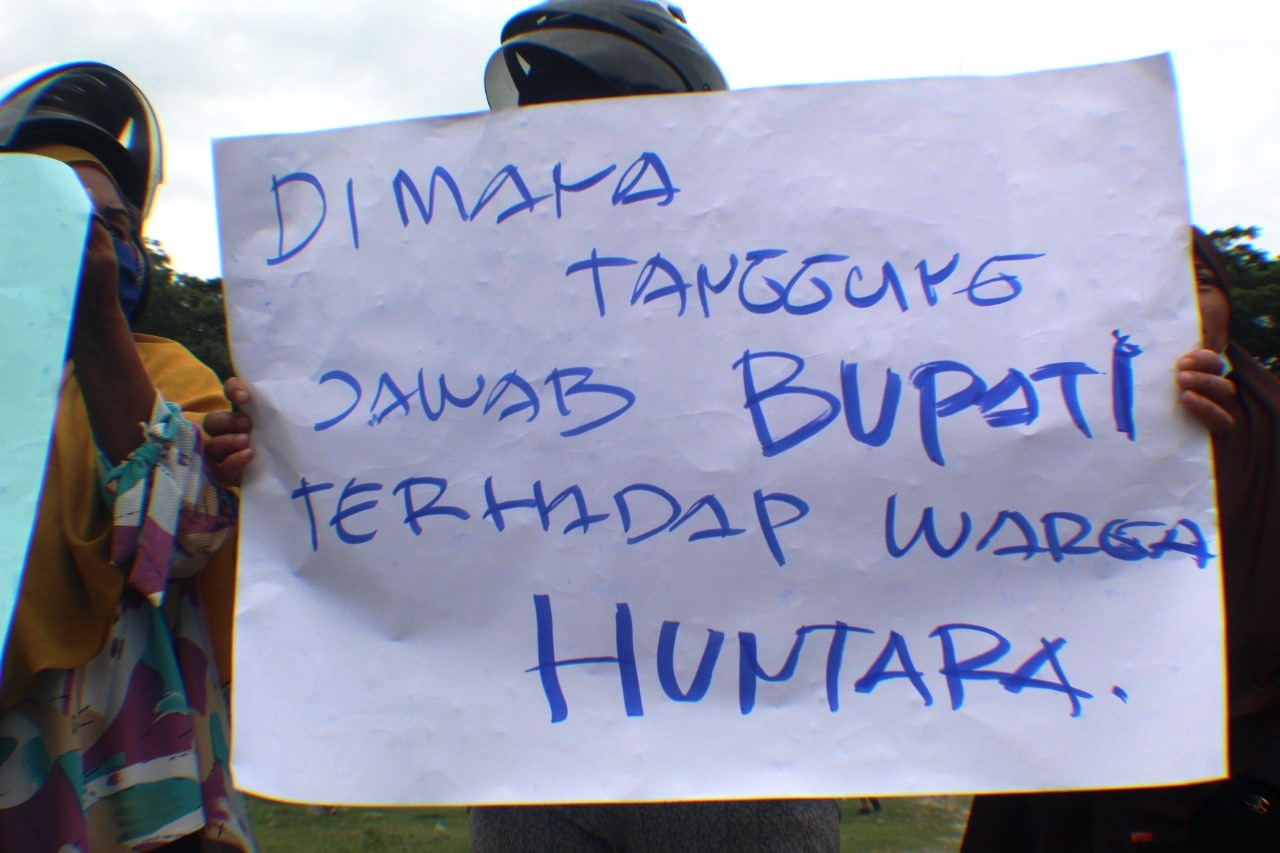 DIMANA
TANGGUNG
JAWAB BUPATI
TERHADAP WARGA
HUNTARA.